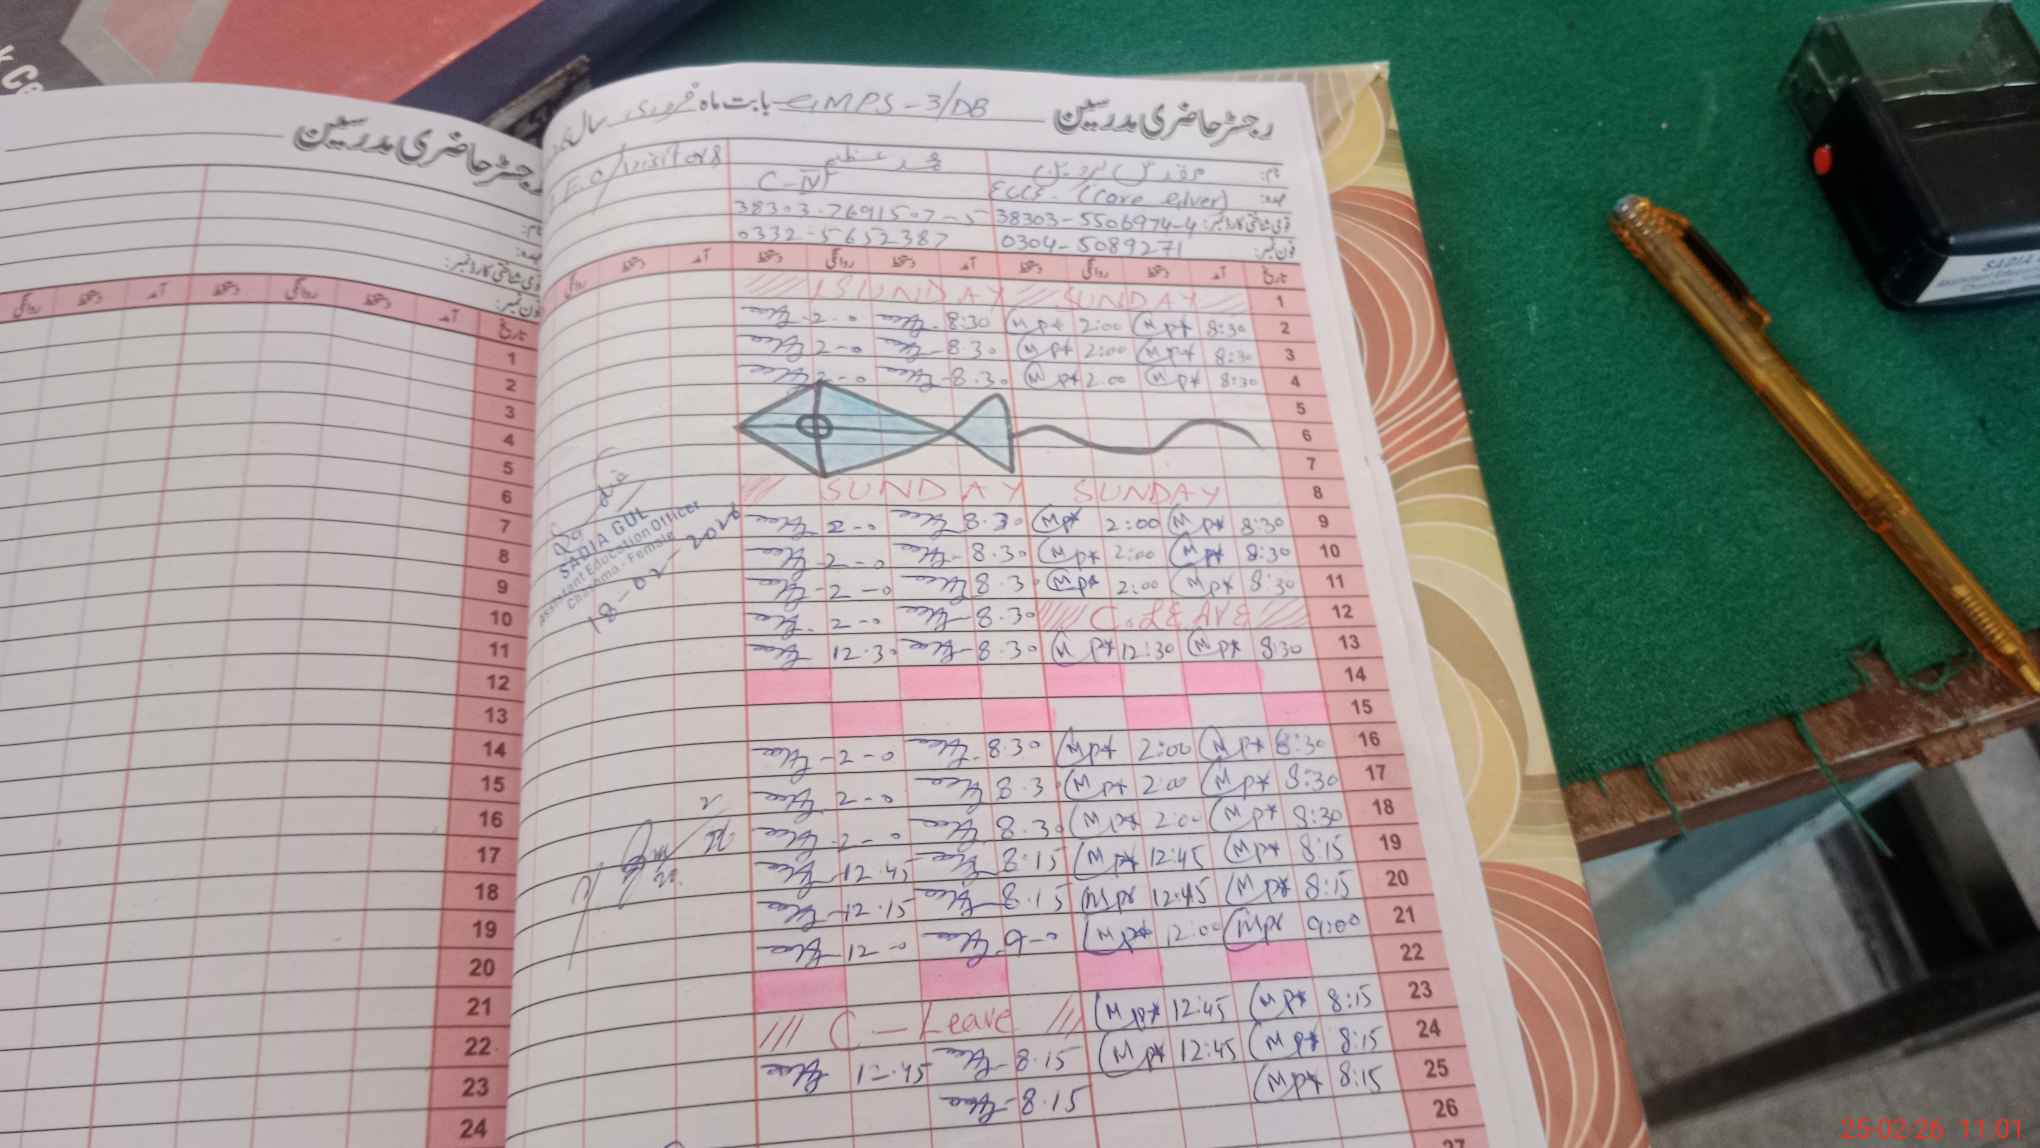 رجسٹر حاضری مدرسین
GMPS-3/DB بابت ماہ فروری سال
نام:
عہدہ: ECCE (Core giver) C-IV /visitors
قومی شناختی کارڈ نمبر: 38303-5506974-4 38303-7691507-5
فون نمبر: 0304-5089271 0332-5652387
تاریخ آمد دستخط روانگی دستخط آمد دستخط روانگی دستخط آمد دستخط روانگی
1 SUNDAY SUNDAY
2 8:30 Mp* 2:00 Mp* 8:30 2-0
3 8:30 Mp* 2:00 Mp* 8.30 2-0
4 8:30 Mp* 2.00 Mp* 8.30 2-0
5
6
7
8 SUNDAY SUNDAY
9 8:30 Mp* 2:00 Mp* 8.30 2-0
10 8:30 Mp* 2:00 Mp* 8.30 2-0
11 8:30 Mp* 2:00 Mp* 8.30 2-0
12 C.LEAVE 8.30 2-0
13 8:30 Mp* 12:30 Mp* 8.30 12.30
14
15
16 8:30 Mp* 2:00 Mp* 8.30 2-0
17 8:30 Mp* 2:00 Mp* 8.3 2-0
18 8:30 Mp* 2:00 Mp* 8.30 2-0
19 8:15 Mp* 12:45 Mp* 8.15 12.45
20 8:15 Mp* 12:45 Mp* 8.15 12.15
21 9:00 Mp* 12:00 Mp* 9-0 12-0
22
23 8:15 Mp* 12:45 Mp* C-Leave
24 8:15 Mp* 12:45 Mp* 8.15 12.45
25 8:15 Mp* 8.15
26
27
SADIA GUL
Assistant Education Officer
Female
18-02-2026
رجسٹر حاضری مدرسین
نام:
عہدہ:
قومی شناختی کارڈ نمبر:
فون نمبر:
تاریخ آمد دستخط روانگی دستخط آمد دستخط روانگی
1
2
3
4
5
6
7
8
9
10
11
12
13
14
15
16
17
18
19
20
21
22
23
24
SADIA
25-02-26 11:01